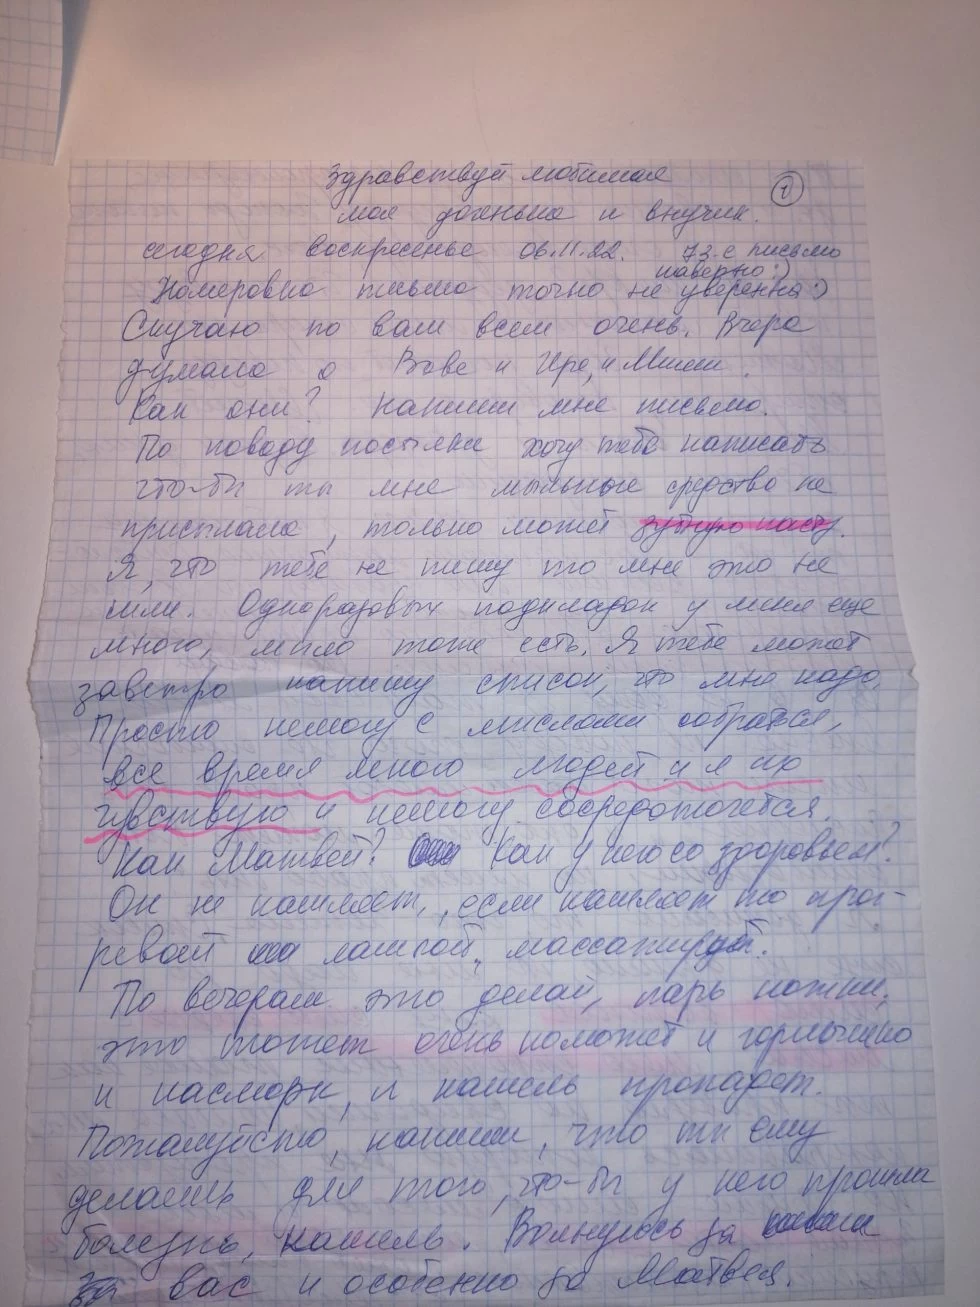 Здравствуй любимая
①
моя доченька и внучик.
сегодня воскресенье 06.11.22. 73-е письмо
наверно:)
Номеровка письма точно не уверенна:)
Скучаю по вам всем очень. Вчера
думала о Вове и Ире, и Миши.
Как они? Напиши мне письмо.
По поводу посылки хочу тебе написать
что-бы ты мне мыльные средство не
присылала, только может зубную пасту.
Я, что тебе не пишу то мне это не
шли. Одноразовых подкладок у меня еще
много, мыло тоже есть. Я тебе может
завтро напишу список, что мне надо.
Просто немогу с мыслями собраться,
все время много людей и я их
чувствую и немогу сосредоточется.
Как Матвей? Как у него со здоровьем?
Он не кашляет, если кашляет то прог-
ревай лампой, массажируй.
По вечерам это делай, парь ножки,
это может очень поможет и горлышко
и насморк, и кашель пропадет.
Пожалуйсто, напиши, что ты ему
делаешь для того, что-бы у него прошла
болезнь, кашель. Волнуюсь за
вас и особенно за Матвея.